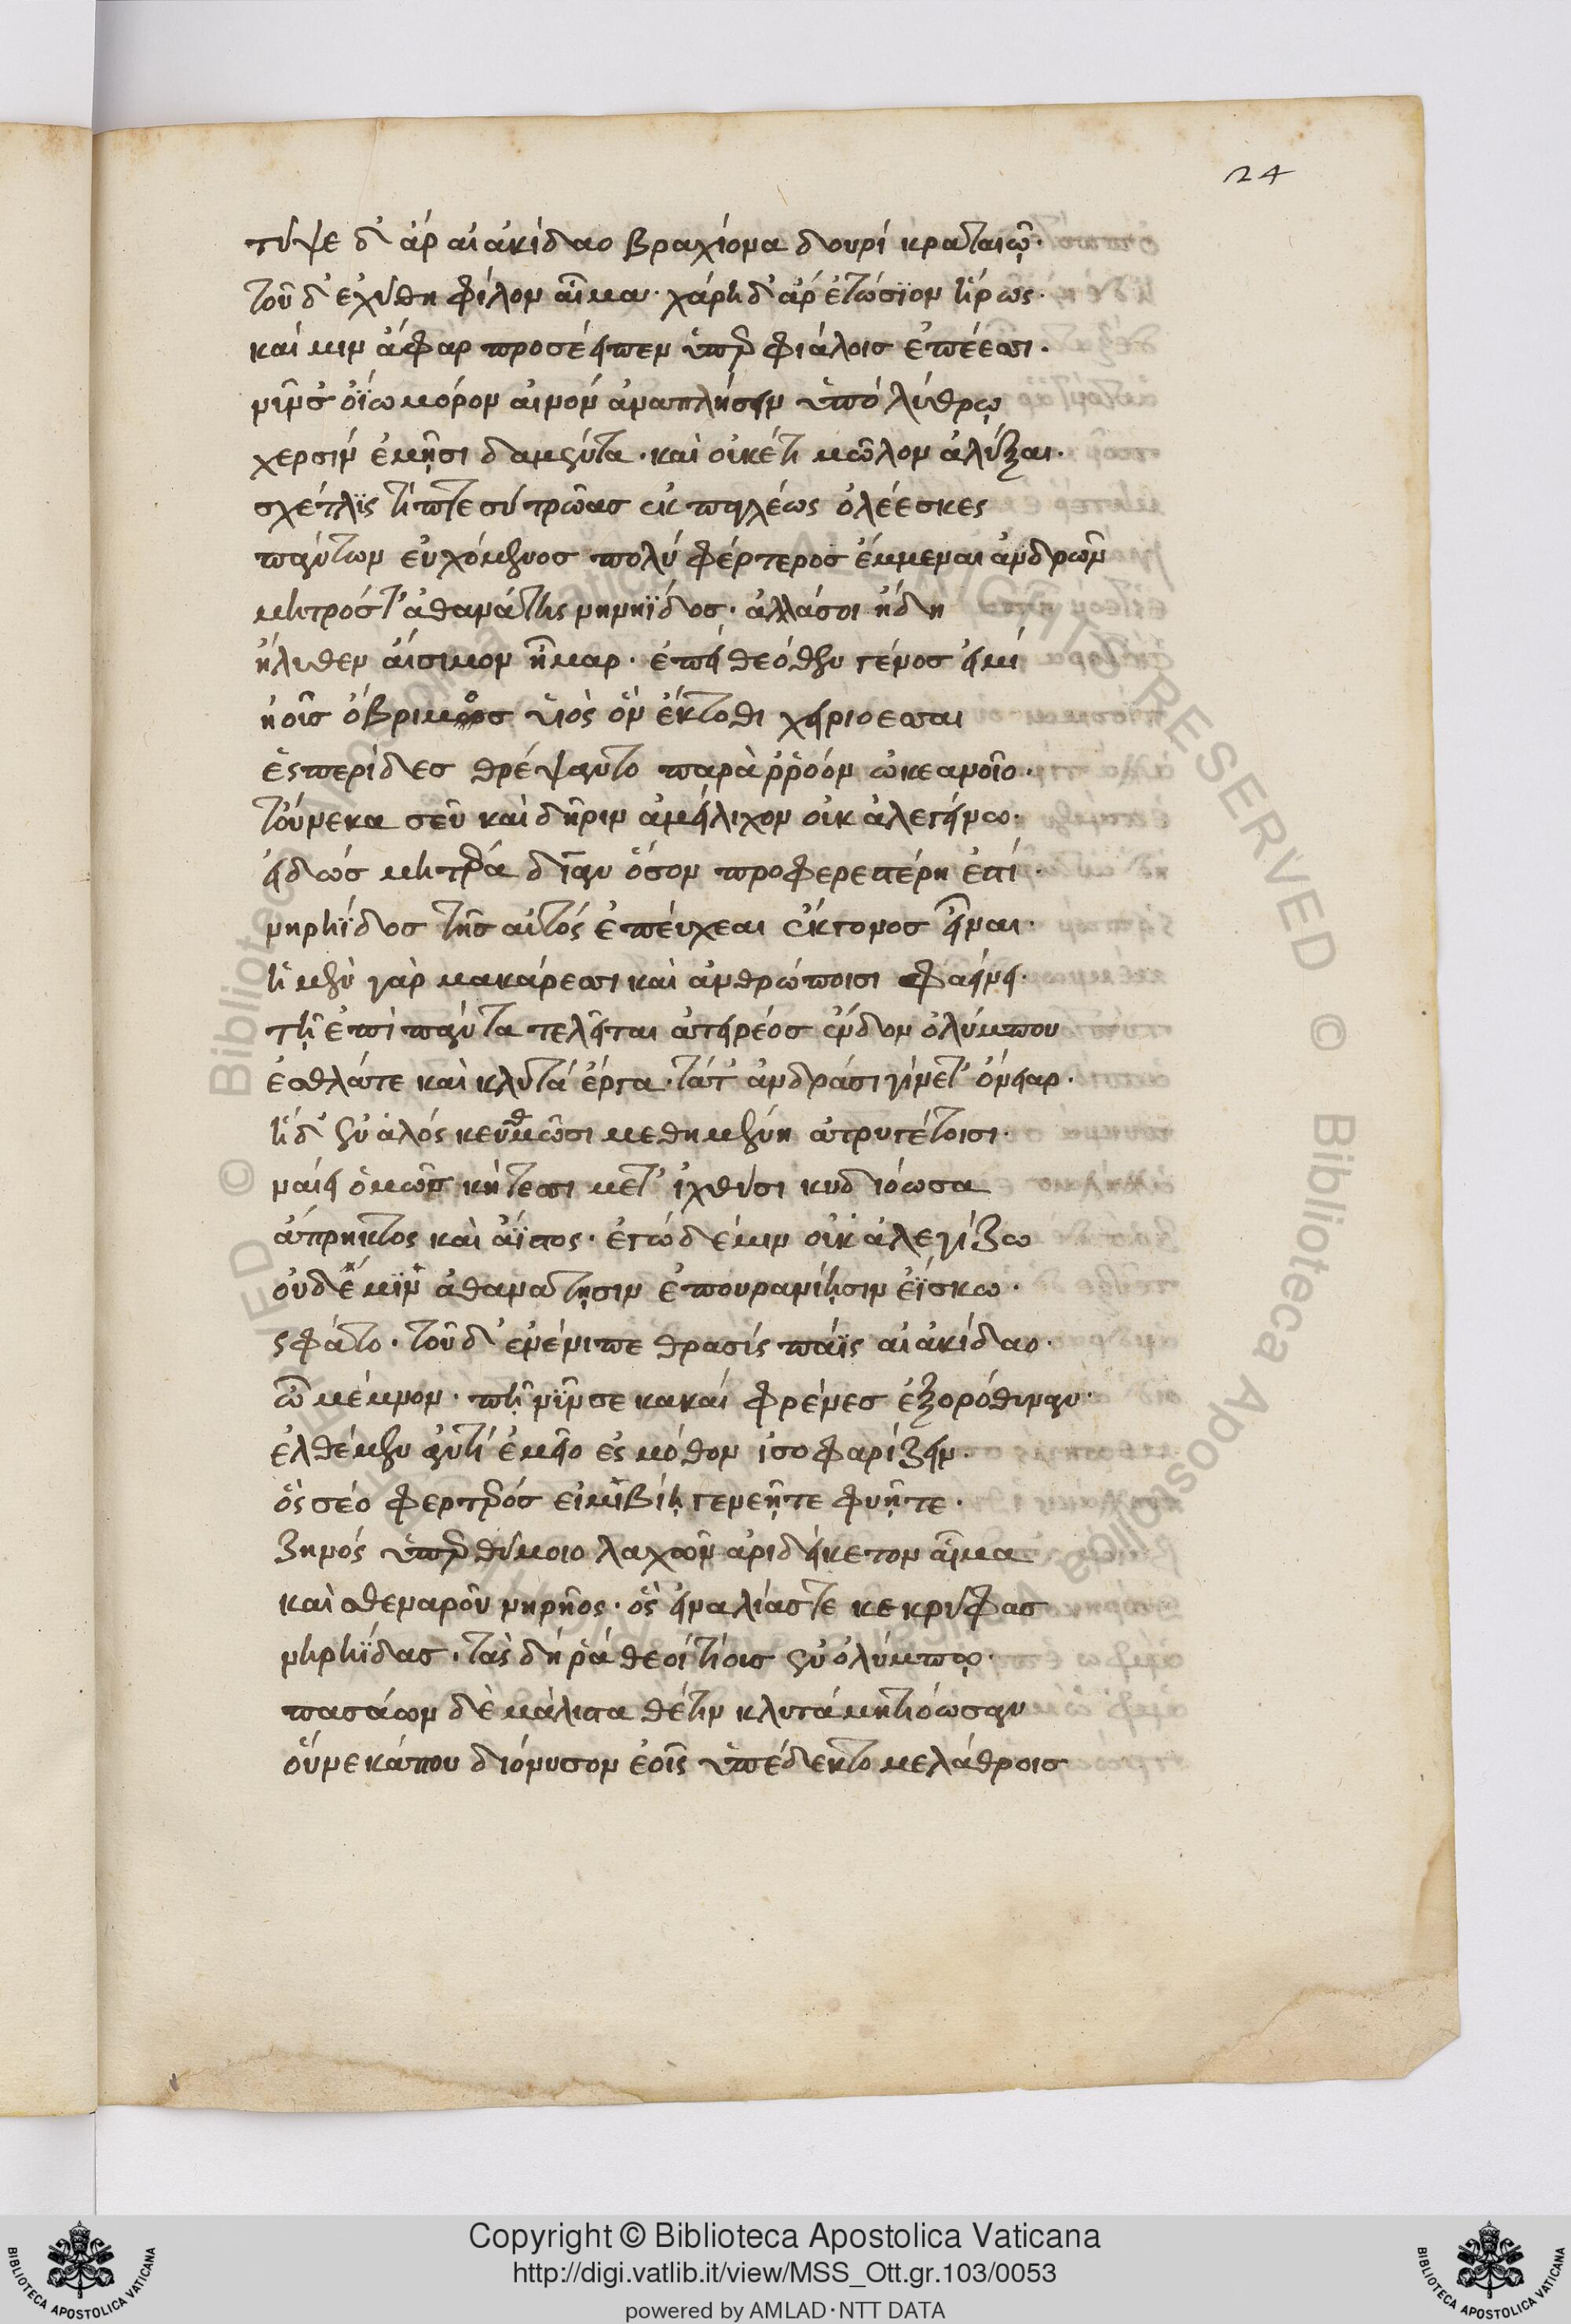 24
τύψε δ' ἄρ αἰακίδαο βραχίονα δουρί κραταιῷ·
τοῦ δ' ἐχύθη φίλον αἷμα· χάρη δ' ἄρ ἐτώσϊον ἥρως·
καί μιν ἄφαρ προσέειπεν ὑπερφιάλοις ἐπέεσσι·
νῦν σ' ὀΐω μόρον αἰνόν ἀναπλήσειν ὑπό λύθρῳ
χερσίν ἐμῇσι δαμέντα· καὶ οὐκέτι μῶλον ἀλύξαι·
σχέτλϊε τίπτε σύ τρῶας ἐκ πηλέως ὀλέεσκες
πάντων εὐχόμενος πολύ φέρτερος ἔμμεναι ἀνδρῶν
μητρόστ' ἀθανάτης νηρηΐδος· ἀλλάσοι ἤδη
ἤλυθεν αἴσιμον ἦμαρ· ἐπεί θεόθεν γένος εἰμί
ἠοῦς ὄβριμος υἱὸς ὃν ἔκτοθι χείριοεσσαι
ἑσπερίδες θρέψαντο παρὰ ῥρόον ὠκεανοῖο·
τοὔνεκα σεῦ καὶ δῆριν ἀμείλιχον οὐκ ἀλεγείνω·
εἰδώς μητέρα δῖαν ὅσον προφερεστέρη ἐστί·
νηρηΐδος τῆς αὐτός ἐπεύχεαι ἔκγονος εἶναι·
ἡ μὲν γὰρ μακάρεσσι καὶ ἀνθρώποισι φαείνει·
τῇ ἐπὶ πάντα τελεῖται ἀτειρέος ἔνδον ὀλύμπου
ἐσθλάτε καὶ κλυτά ἔργα· τάτ' ἀνδράσι γίνετ' ὄνειαρ·
ἡ δ' ἐν ἁλός κευθμῶσι μεθημένη ἀτρυγέτοισι·
ναίει ὁμῶς κήτεσσι μετ' ἰχθύσι κυδιόωσα
ἄπρηκτος καὶ ἄϊστος· ἐγώ δέ μιν οὐκ ἀλεγίζω
οὐδέ μϊν ἀθανάτῃσιν ἐπουρανίῃσιν ἐΐσκω·
ὣς φάτο· τοῦ δ' ἐνένιπε θρασύς πάϊς αἰακίδαο·
ὦ μέμνον· πῇ νῦν σε κακαί φρένες ἐξορόθυναν·
ἐλθέμεν ἀντί ἐμεῖο ἐς μόθον ἰσοφαρίζειν·
ὃς σέο φέρτερός εἰμι βίῃ γενεῇτε φυῇτε·
ζηνός ὑπερθύμοιο λαχών ἀριδείκετον αἷμα
καὶ σθεναροῦ νηρῆος· ὃς εἰναλίας τε κεκρύφας
νηρηΐδας· τὰς δή ῥά θεοί τίους ἐν ὀλύμπῳ·
πασάων δὲ μάλιστα θέτιν κλυτά μητιόωσαν
οὕνεκάπου διόνυσον ἑοῖς ὑπέδεκτο μελάθροις
Copyright © Biblioteca Apostolica Vaticana
http://digi.vatlib.it/view/MSS_Ott.gr.103/0053
powered by AMLAD·NTT DATA